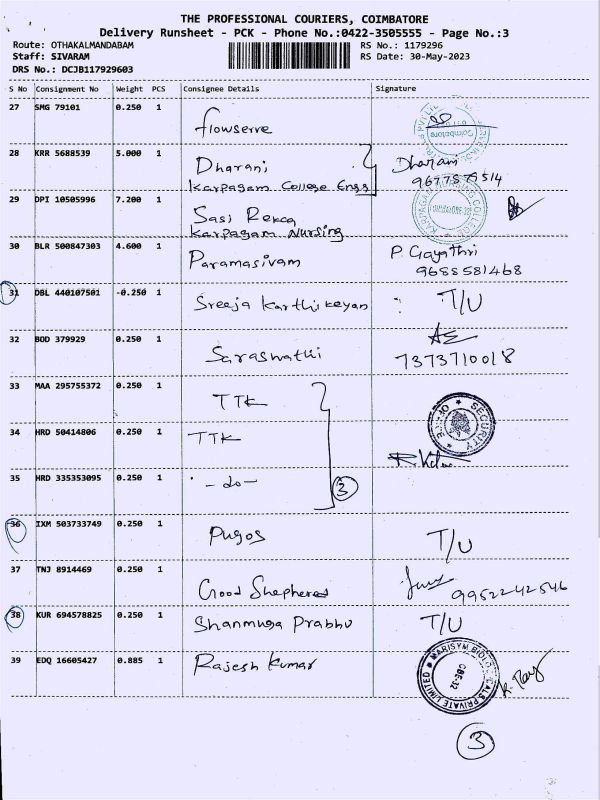 THE PROFESSIONAL COURIERS, COIMBATORE
Delivery Runsheet - PCK - Phone No.:0422-3505555 - Page No.:3
Route: OTHAKALMANDABAM RS No.: 1179296
Staff: SIVARAM RS Date: 30-May-2023
DRS No.: DCJB117929603
S No Consignment No Weight PCS Consignee Details Signature
27 SMG 79101 0.250 1
flowserve
Coimbatore
28 KRR 5688539 5.000 1
Dharani Dharani
Karpagam College Engg
29 DPI 10505996 7.200 1
Sasi
Karpagam Nursing
KARPAGAM NURSING COLLEGE
30 BLR 500847303 4.600 1
Paramasivam P. Gayathri
9688581468
31 DBL 440107501 -0.250 1
Sreeja Karthikeyan T/U
32 BOD 379929 0.250 1
Saraswathi 7373710018
33 MAA 295755372 0.250 1
TTK
SECURITY OFFICE
34 HRD 50414806 0.250 1
TTK
35 HRD 335353095 0.250 1
- do - 3
36 IXM 503733749 0.250 1
Pugos T/U
37 TNJ 8914469 0.250 1
Good Shepherd 9952242546
38 KUR 694578825 0.250 1
Shanmuga Prabhu T/U
39 EDQ 16605427 0.885 1
Rajesh Kumar
MARISYM BIOLOGICALS PRIVATE LIMITED
CBE-32
3